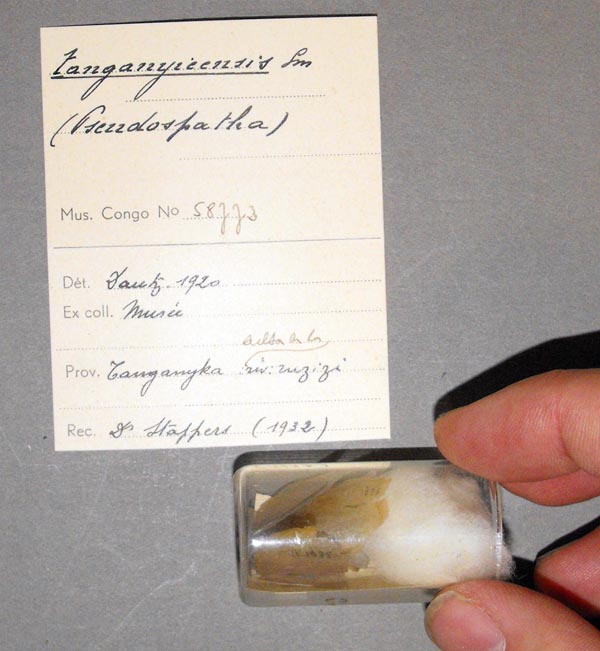 tanganyicensis Sm
(Pseudospatha)
Mus. Congo No 58773
Dét. Dautz. 1920
Ex coll. Musée
delta de la
Prov. Tanganyka riv: ruzizi
Rec. Dr Stappers (1932)